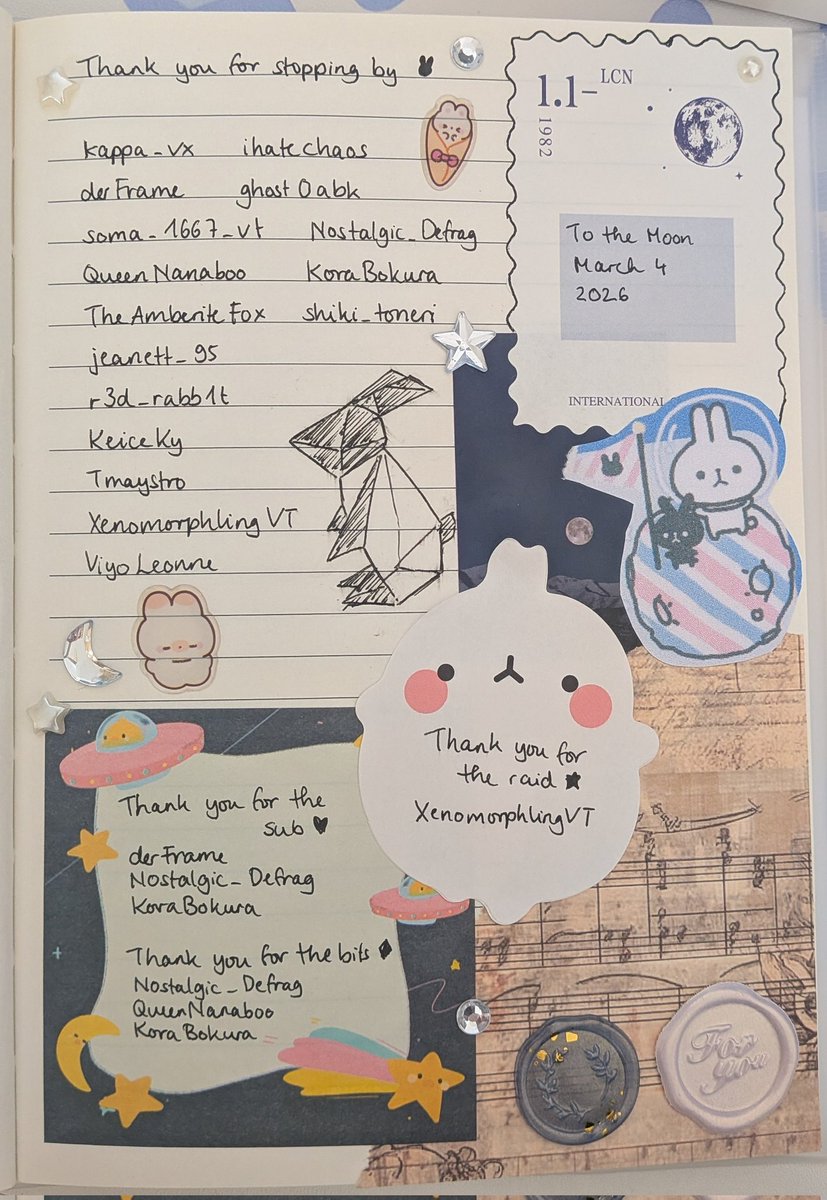 Thank you for stopping by
kappa_vx ihatechaos
derFrame ghost0abk
soma_1667_vt Nostalgic_Defrag
QueenNanaboo KoraBokura
TheAmberiteFox shiki_toneri
jeanett_95
r3d_rabb1t
KeiceKy
Tmaystro
XenomorphlingVT
ViyoLeonne
1.1-LCN
1982
To the Moon
March 4
2026
INTERNATIONAL
Thank you for
the raid
XenomorphlingVT
Thank you for the
sub
derFrame
Nostalgic_Defrag
KoraBokura
Thank you for the bits
Nostalgic_Defrag
QueenNanaboo
KoraBokura
For
you